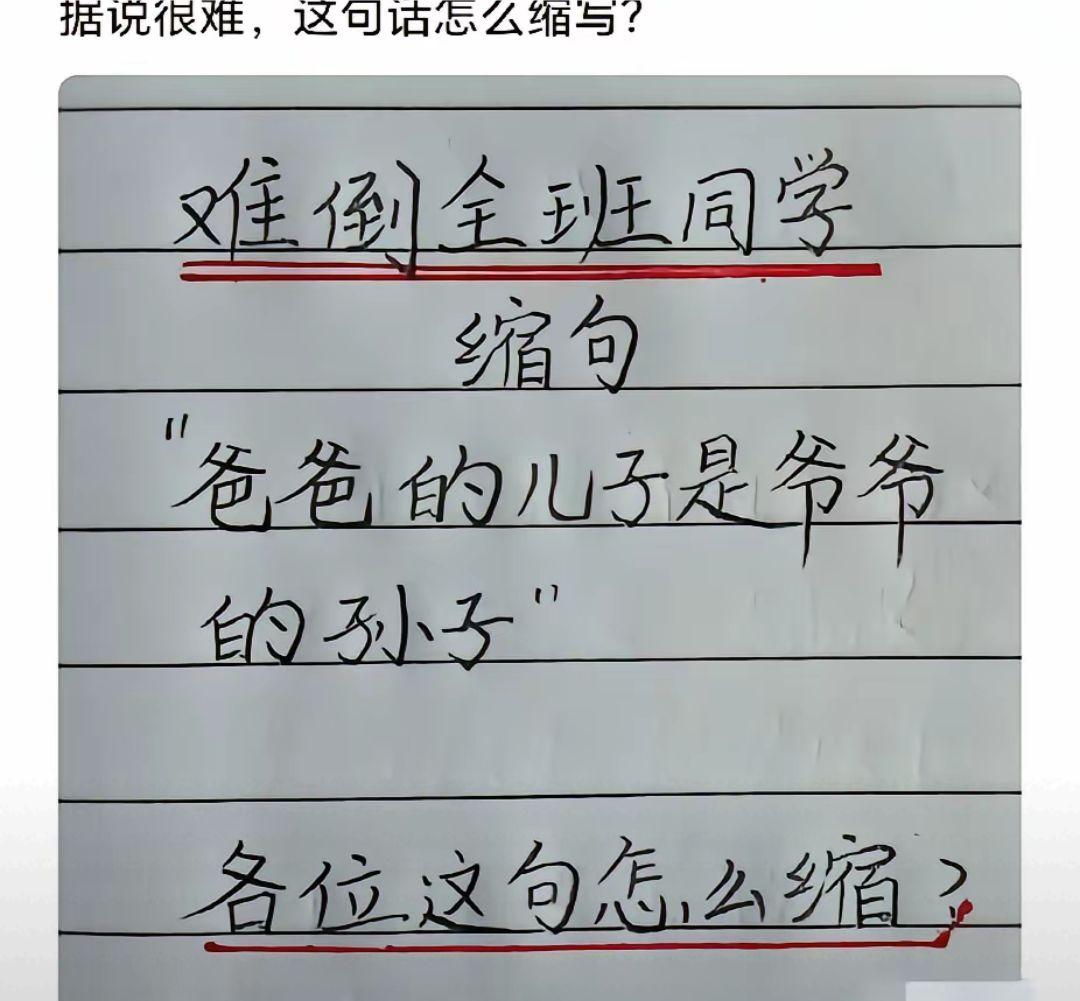 据说很难，这句话怎么缩写？
难倒全班同学
缩句
"爸爸的儿子是爷爷
的孙子"
各位这句怎么缩？